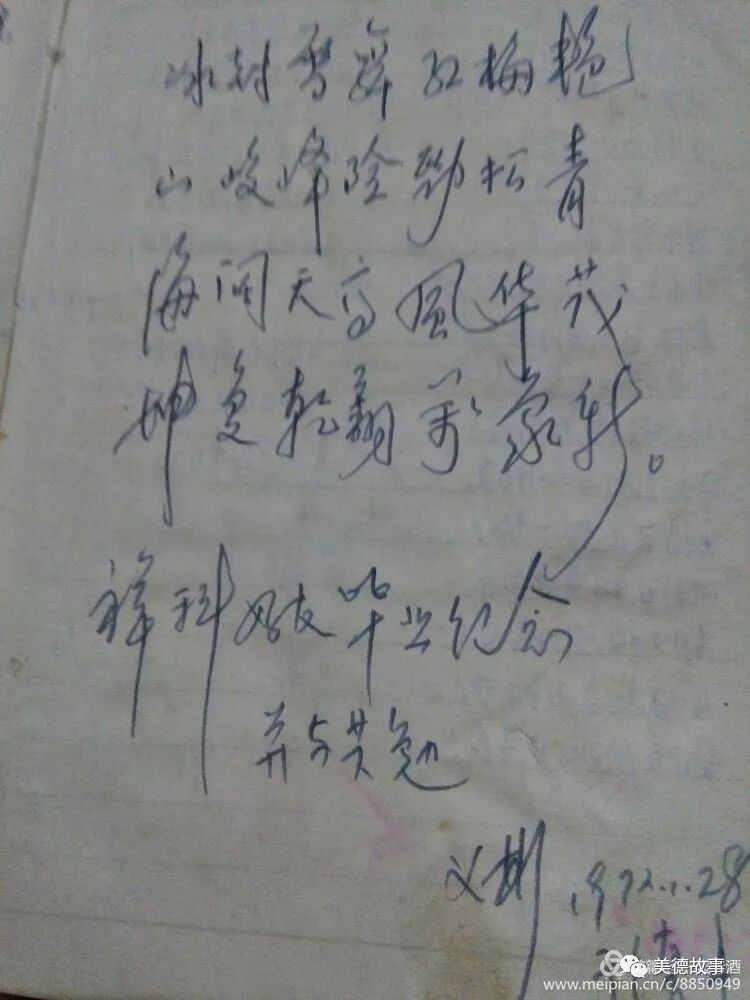 冰封雪舞红梅艳
山峻峰险劲松青
海阔天高風华茂
坤复乾翻万象新。
祥科好友毕业纪念
并与共勉
义彬 1972.1.28
美德故事
www.meipian.cn/c/8850949